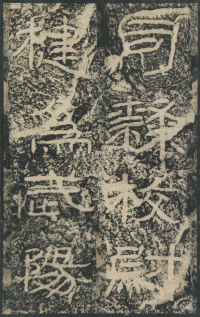 司隸校尉
楗為武陽